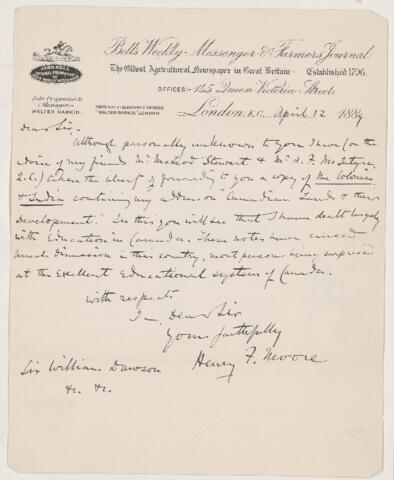 Bell's Weekly Messenger & Farmers Journal.
The Oldest Agricultural Newspaper in Great Britain — Established 1796.
JOHN BELL
Sole Proprietor & Manager
WALTER DARKIN.
OFFICES: 145 Queen Victoria Street,
"WALTER DARKIN" LONDON.
London, E.C. April 12 1884
Dear Sir,
Although personally unknown to you I have (on the
advice of my friends Mr McLeod Stewart & Mr A. F. McIntyre,
Q.C.) taken the liberty of forwarding to you a copy of The Colonies
& India containing my address on "Canadian Lands & their
Development." In this you will see that I have dealt largely
with Education in Canada. These notes have caused
much discussion in this country, most persons being surprised
at the Excellent Educational system of Canada.
With respects
I am, Dear Sir
Yours faithfully
Henry F. Moore
Sir William Dawson
&c. &c.